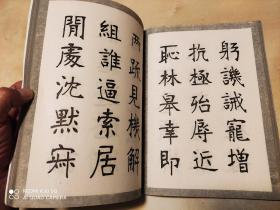 躬譏誡寵增
抗極殆辱近
恥林皋幸即
兩疏見機解
組誰逼索居
閒處沈默寂
AI QUAD CAMERA